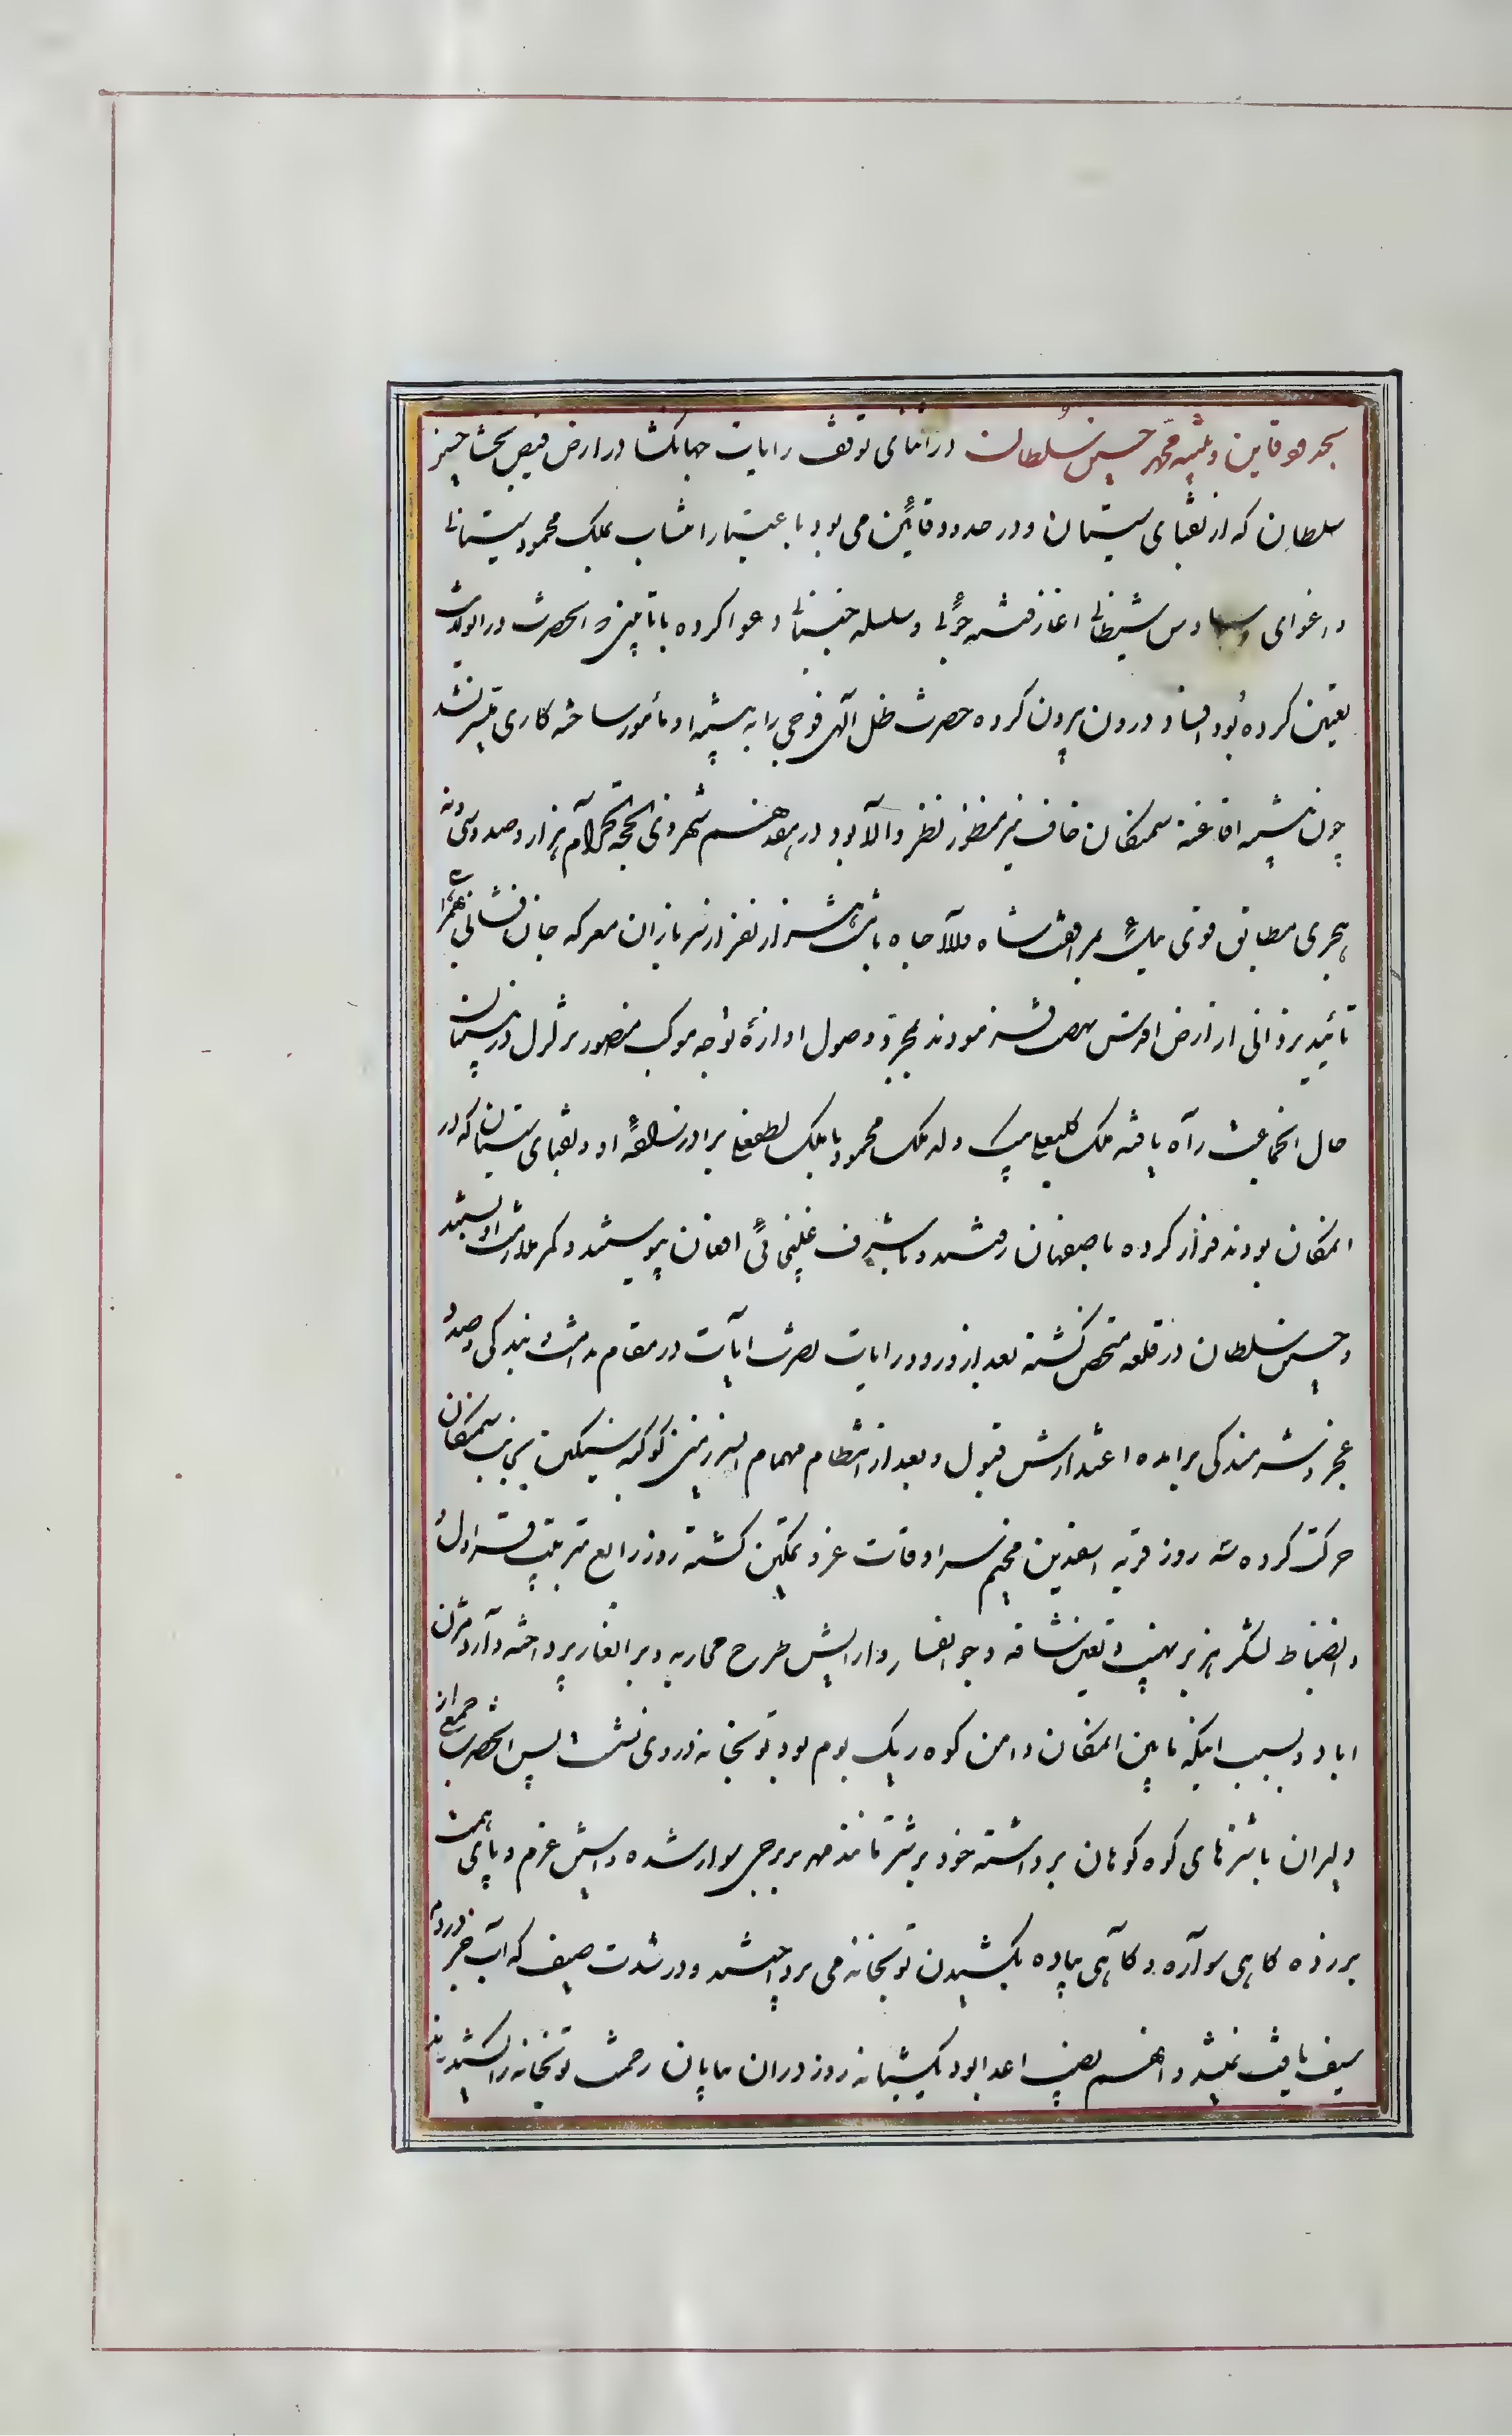 بحدود قاین و تنبیه محمد حسین سلطان در اثنای توقف رایات جهانگشا در ارض فیض بخشا حسین
سلطان که از نقبای سیستان و در حدود قائین می بود باعتبار انتساب بملک محمود سیستانی
و اغوای وساوس شیطانی اغاز فتنه جوئی و سلسله جنبانی دعوا کرده با تابین که انحضرت در انولایت
تعیین کرده بود افساد درون برون کرده حضرت ظل الهی فوجی را به تنبیه او مأمور ساخته کاری میسر نشد
چون تنبیه افاغنه سمنکان خاف نیز منظور نظر والا بود در هفدهم شهر ذی الحجه الحرام هزار و صد و سی و نه
هجری مطابق قوی ئیل بمرافقت شاه والا جاه با هشت هزار نفر از سربازان معرکه جان فشانی بهمراهی
تأیید یزدانی از ارض اقدس نهضت فرمودند بمجرد وصول اوازهٔ توجه موکب منصور تزلزل در بنیان
حال انجماعت راه یافته ملک کلبعلی بیک ولد ملک محمود با ملک لطفعلی برادرزادهٔ او و نقبای سیستان که در
المکان بودند فرار کرده باصفهان رفتند و باشرف غلیجائی افغان پیوستند و کمر ملازمت او بستند
و حسین سلطان در قلعه متحصن گشته بعد از ورود رایات نصرت ایات در مقام ندامت و بندکی و صدد
عجز و شرمندکی برامده اعتذارش قبول و بعد از انتظام مهام انسرزمین کوکبه سنیکین بجانب سمنکان
حرکت کرده سه روز قریه اسفدین مخیم سرادقات عز و تمکین گشته روز رابع بترتیب قراول
و انضباط لشکر هزبر مهیب و تعین ساقه و جوانغار و ارایش طرح محاربه و برانغار پرداخته وارد مژن
اباد و بسبب اینکه مابین المکان دامن کوه ریک بوم بود توپخانه در وی نشست پس انحضرت جمعی از
دلیران باشترهای کوه کوهان برداشته خود بر شتر مانند مهر بر برجی سوار شده و استین عزم و پای همت
برزده کاهی سواره و کاهی پیاده بکشیدن توپخانه می پرداختند و در شدت صیف که آب جز در دم
سیف یافت نمیشد و انهم نصیب اعدا بود یکشبانه روز در ان بیابان زحمت توپخانه را کشیدند